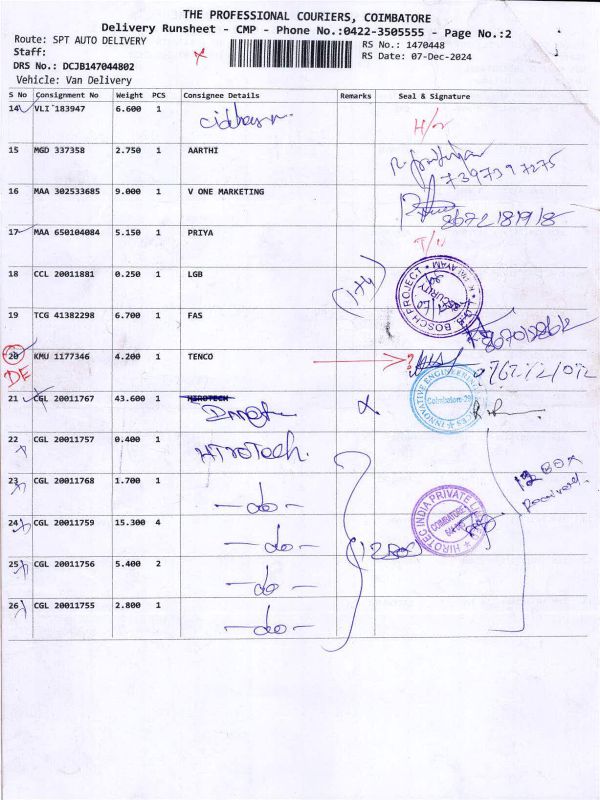 THE PROFESSIONAL COURIERS, COIMBATORE
Delivery Runsheet - CMP - Phone No.:0422-3505555 - Page No.:2
Route: SPT AUTO DELIVERY RS No.: 1470448
Staff: RS Date: 07-Dec-2024
DRS No.: DCJB147044802
Vehicle: Van Delivery
S No Consignment No Weight PCS Consignee Details Remarks Seal & Signature
14 VLI 183947 6.600 1
15 MGD 337358 2.750 1 AARTHI
7397397275
16 MAA 302533685 9.000 1 V ONE MARKETING
17 MAA 650104084 5.150 1 PRIYA
18 CCL 20011881 0.250 1 LGB
BOSCH PROJECT
SECURITY
19 TCG 41382298 6.700 1 FAS
20 KMU 1177346 4.200 1 TENCO ?
DE
21 CGL 20011767 43.600 1 HIROTECH
INNOVATIVE ENGINEERING
Coimbatore-29
22 CGL 20011757 0.400 1 HIROTECH.
23 CGL 20011768 1.700 1 -do-
12 BOX
Received.
24 CGL 20011759 15.300 4 -do-
HIROTEC INDIA PRIVATE
COIMBATORE
25 CGL 20011756 5.400 2 -do-
26 CGL 20011755 2.800 1 -do-